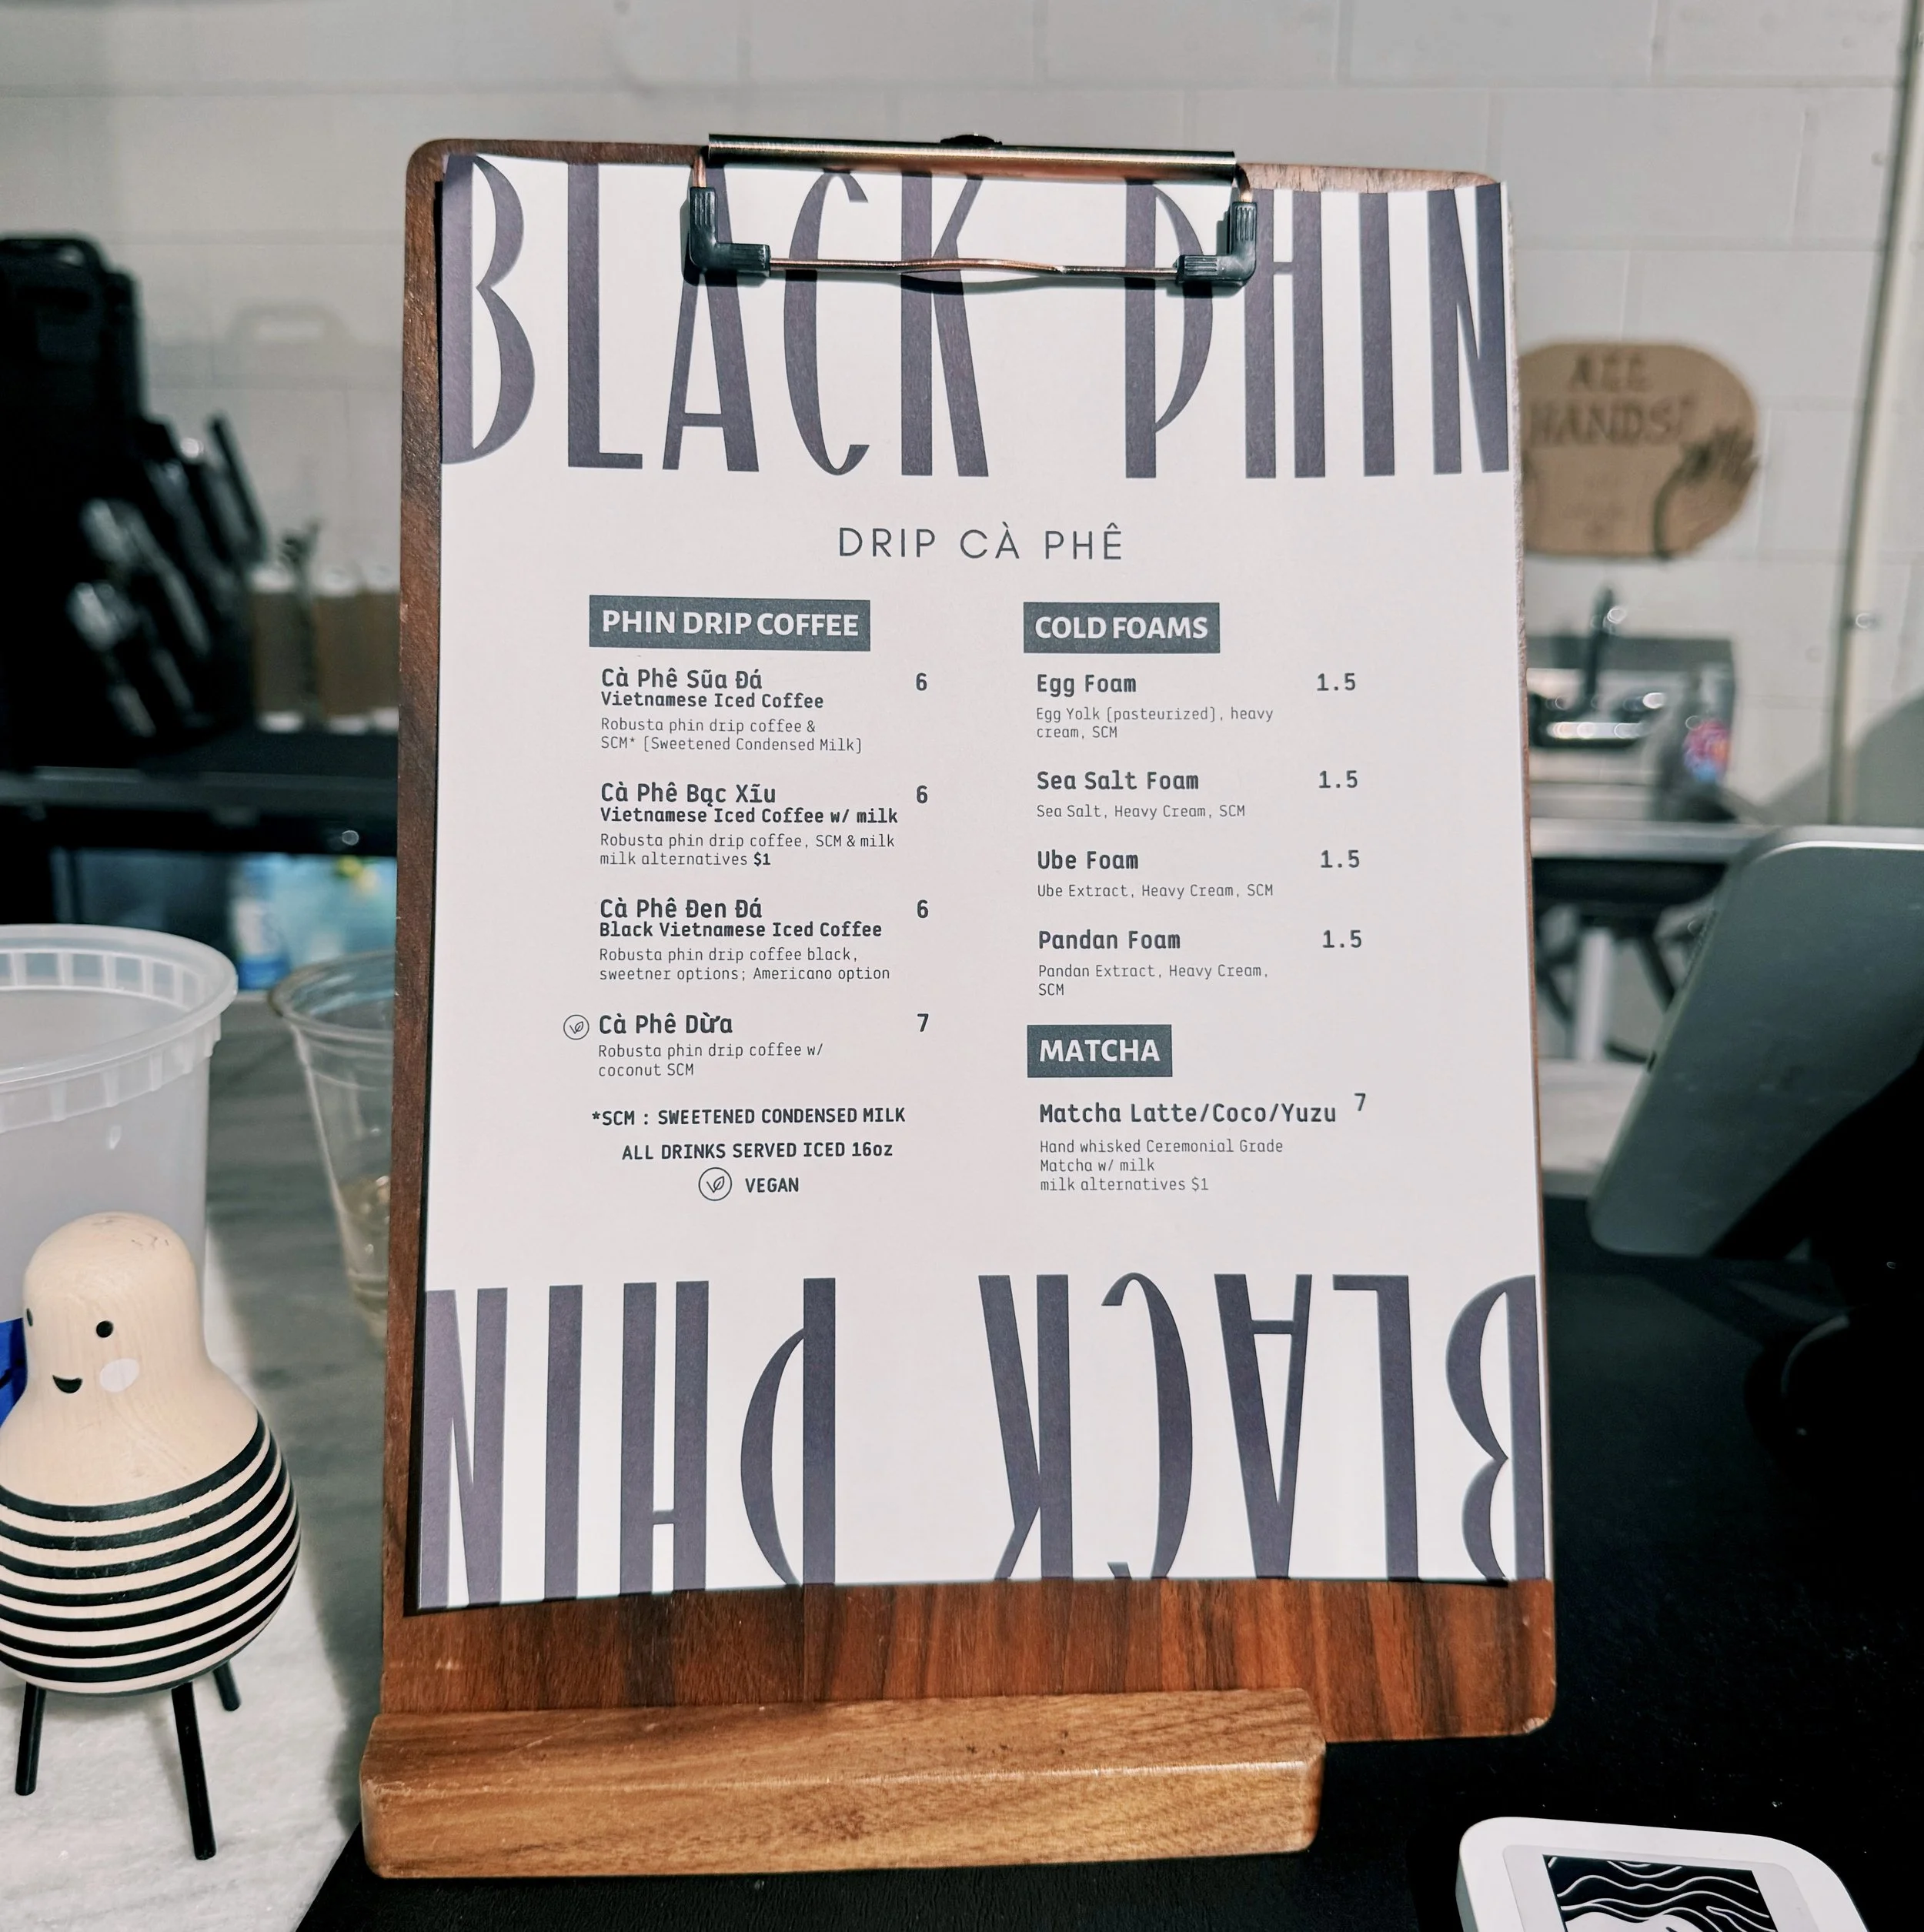 BLACK PHIN
DRIP CÀ PHÊ
PHIN DRIP COFFEE
Cà Phê Sũa Đá 6
Vietnamese Iced Coffee
Robusta phin drip coffee &
SCM* [Sweetened Condensed Milk]
Cà Phê Bạc Xĩu 6
Vietnamese Iced Coffee w/ milk
Robusta phin drip coffee, SCM & milk
milk alternatives $1
Cà Phê Đen Đá 6
Black Vietnamese Iced Coffee
Robusta phin drip coffee black,
sweetner options; Americano option
Cà Phê Dừa 7
Robusta phin drip coffee w/
coconut SCM
*SCM : SWEETENED CONDENSED MILK
ALL DRINKS SERVED ICED 16oz
VEGAN
COLD FOAMS
Egg Foam 1.5
Egg Yolk [pasteurized], heavy
cream, SCM
Sea Salt Foam 1.5
Sea Salt, Heavy Cream, SCM
Ube Foam 1.5
Ube Extract, Heavy Cream, SCM
Pandan Foam 1.5
Pandan Extract, Heavy Cream,
SCM
MATCHA
Matcha Latte/Coco/Yuzu 7
Hand whisked Ceremonial Grade
Matcha w/ milk
milk alternatives $1
BLACK PHIN
ALL
HANDS!